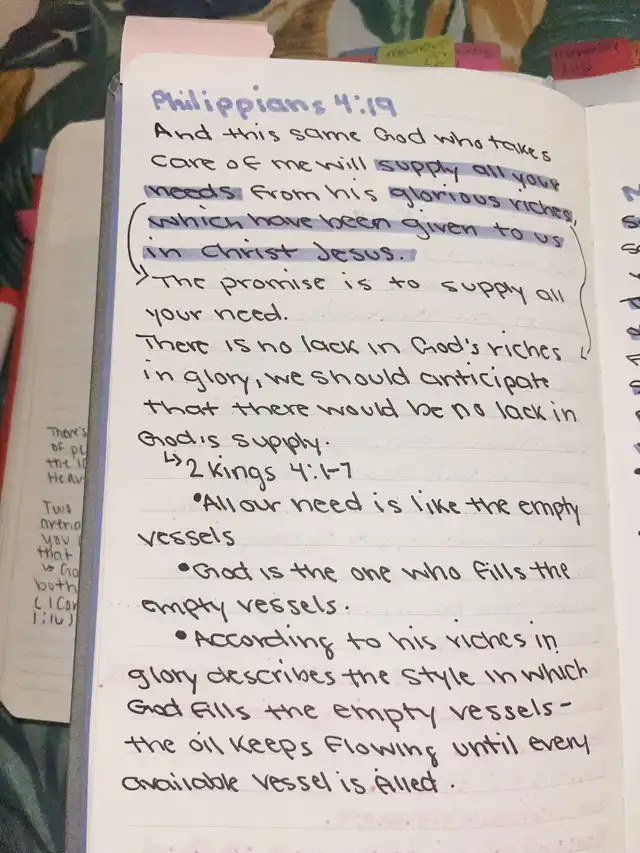 Philippians 4:19
And this same God who takes
care of me will supply all your
needs from his glorious riches,
which have been given to us
in Christ Jesus.
The promise is to supply all
your need.
There is no lack in God's riches
in glory, we should anticipate
that there would be no lack in
God's supply.
↳ 2 Kings 4:1-7
•All our need is like the empty
vessels
•God is the one who fills the
empty vessels.
•According to his riches in
glory describes the style in which
God fills the empty vessels-
the oil keeps flowing until every
available vessel is filled.
There's
of
the
Two
you
that
↳ Go
both
(1 Cor
1:16)